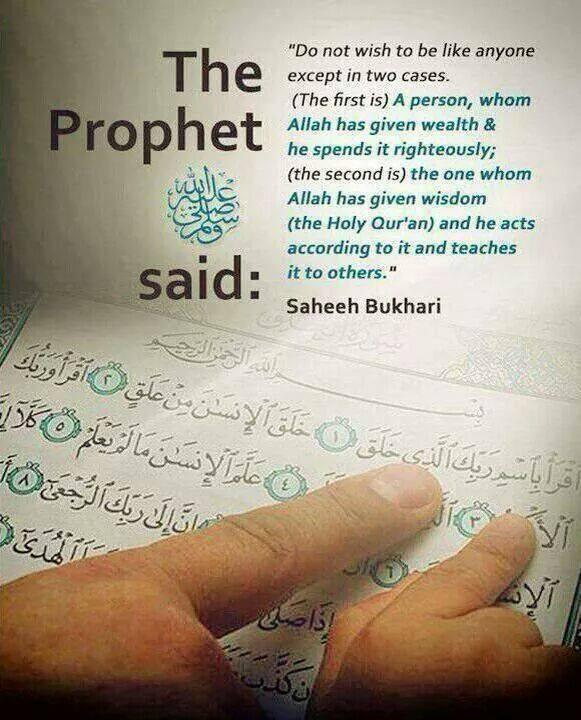 The
Prophet
ﷺ
said:
"Do not wish to be like anyone
except in two cases.
(The first is) A person, whom
Allah has given wealth &
he spends it righteously;
(the second is) the one whom
Allah has given wisdom
(the Holy Qur'an) and he acts
according to it and teaches
it to others."
Saheeh Bukhari
بِسْمِ ٱللَّهِ ٱلرَّحْمَٰنِ ٱلرَّحِيمِ
ٱقْرَأْ بِٱسْمِ رَبِّكَ ٱلَّذِى خَلَقَ ١ خَلَقَ ٱلْإِنسَٰنَ مِنْ عَلَقٍ ٢ ٱقْرَأْ وَرَبُّكَ
٣ ٤ عَلَّمَ ٱلْإِنسَٰنَ مَا لَمْ يَعْلَمْ ٥ كَلَّآ
٦ إِنَّ إِلَىٰ رَبِّكَ ٱلرُّجْعَىٰٓ ٨
إِذَا صَلَّىٰٓ ٱلْهُدَىٰٓ
كَذَّبَ